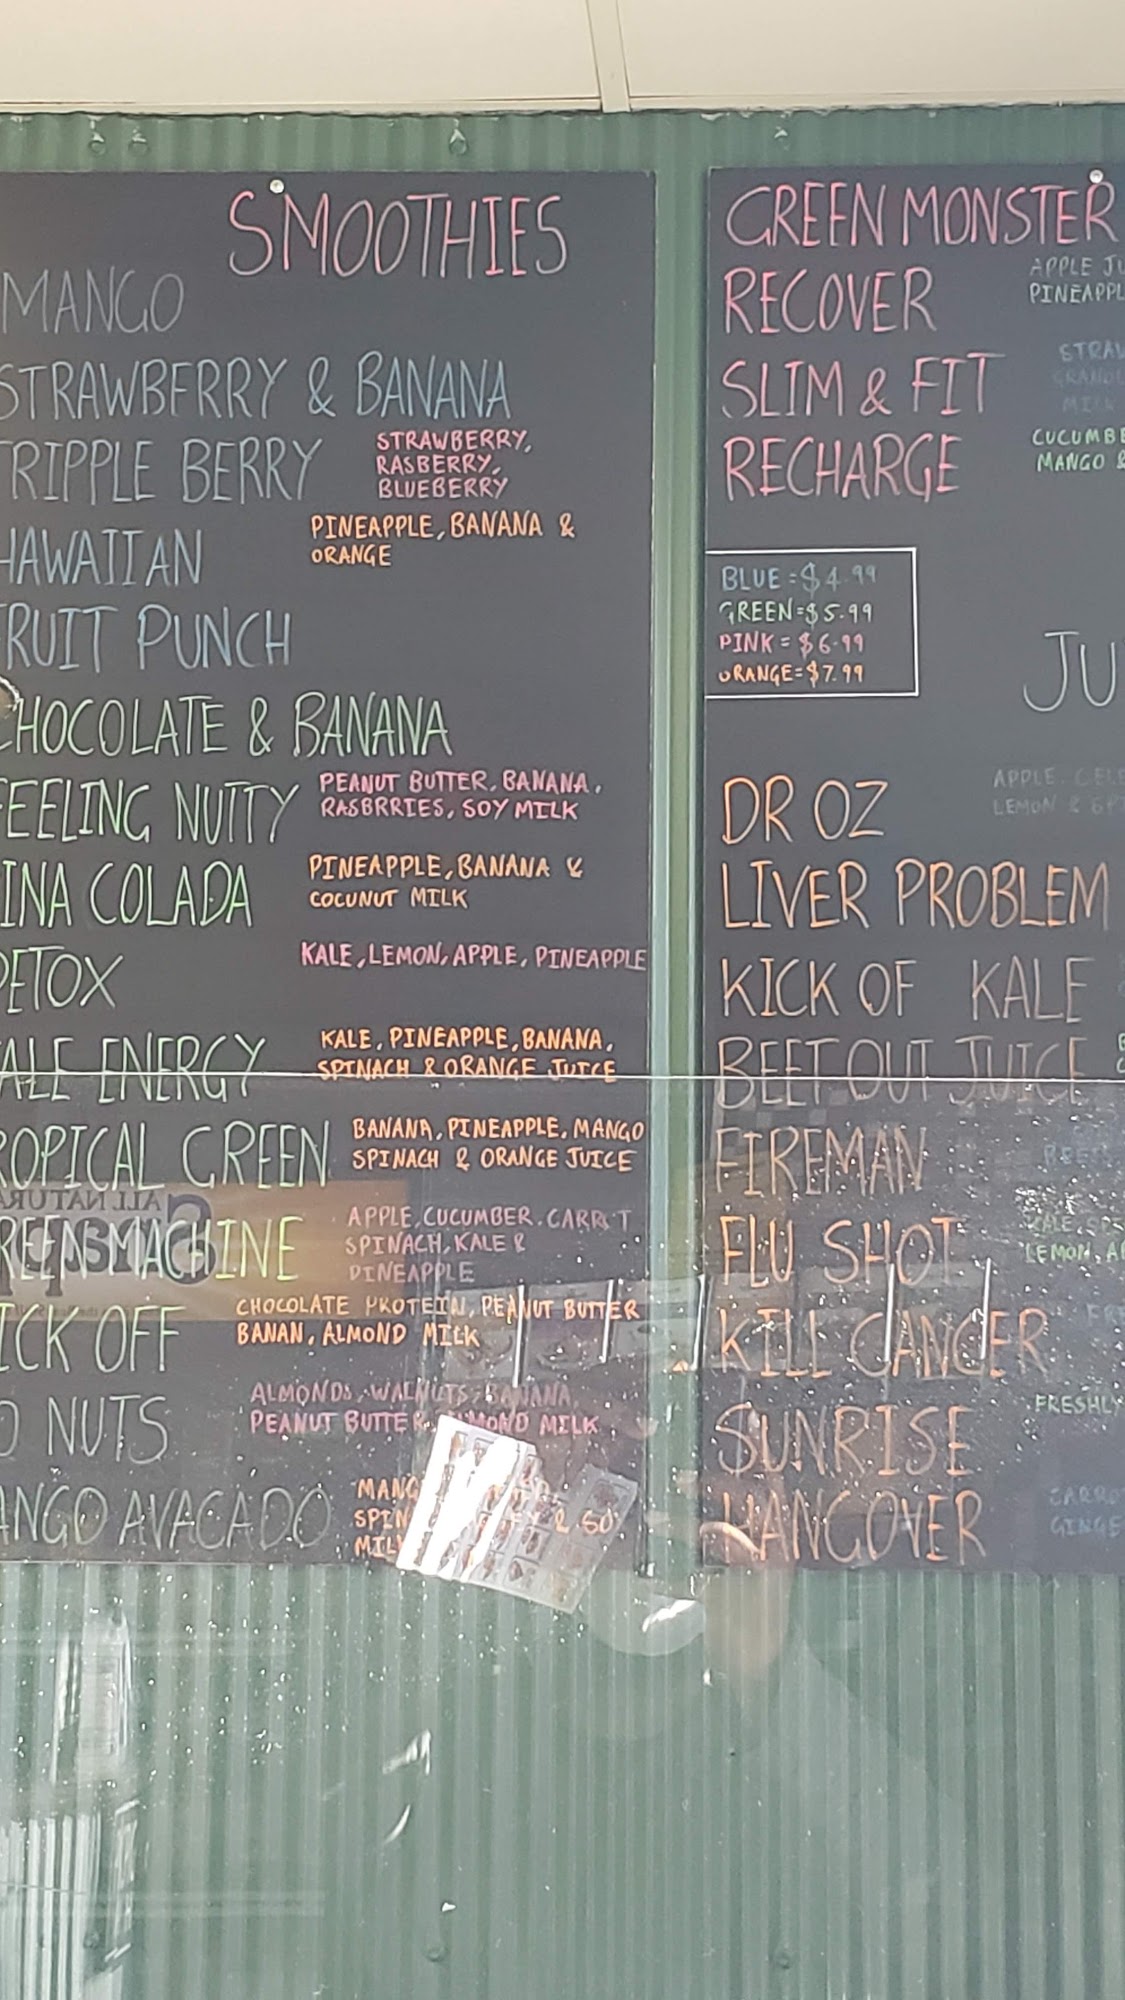 SMOOTHIES
MANGO
STRAWBERRY & BANANA
TRIPPLE BERRY
STRAWBERRY,
RASBERRY,
BLUEBERRY
HAWAIIAN
PINEAPPLE, BANANA &
ORANGE
FRUIT PUNCH
CHOCOLATE & BANANA
FEELING NUTTY
PEANUT BUTTER, BANANA,
RASBRRIES, SOY MILK
INA COLADA
PINEAPPLE, BANANA &
COCUNUT MILK
DETOX
KALE, LEMON, APPLE, PINEAPPLE
ALE ENERGY
KALE, PINEAPPLE, BANANA,
SPINACH & ORANGE JUICE
ROPICAL GREEN
BANANA, PINEAPPLE, MANGO
SPINACH & ORANGE JUICE
REEN MACHINE
APPLE, CUCUMBER, CARROT
SPINACH, KALE &
PINEAPPLE
ICK OFF
CHOCOLATE PROTEIN, PEANUT BUTTER
BANAN, ALMOND MILK
O NUTS
ALMONDS, WALNUTS, BANANA
PEANUT BUTTER, ALMOND MILK
ANGO AVACADO
MANG
SPIN
MIL
GREEN MONSTER
RECOVER
APPLE JU
PINEAPPL
SLIM & FIT
STRAW
GRANOL
MILK
RECHARGE
CUCUMBE
MANGO &
BLUE = $4.99
GREEN = $5.99
PINK = $6.99
ORANGE = $7.99
JU
DR OZ
APPLE, CEL
LEMON &
LIVER PROBLEM
KICK OF KALE
BEET OUT JUICE
FIREMAN
BEETS
FLU SHOT
KALE,
LEMON, AP
KILL CANCER
FRE
SUNRISE
FRESHLY
HANGOVER
CARRO
GINGE
ALL NATURA